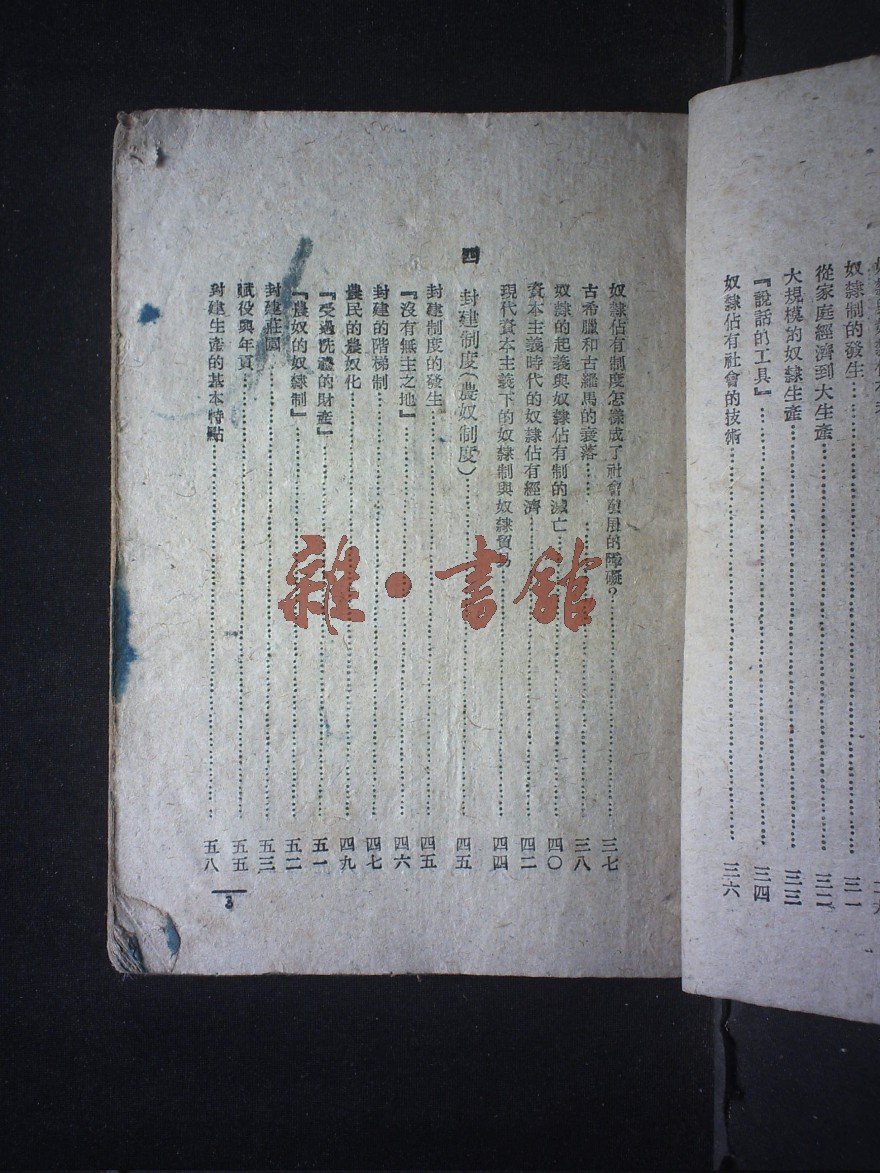 奴隸制的發生 三一
從家庭經濟到大生產 三二
大規模的奴隸生產 三三
『說話的工具』 三四
奴隸佔有社會的技術 三六
奴隸佔有制度怎樣成了社會發展的障礙？ 三七
古希臘和古羅馬的衰落 三八
奴隸的起義與奴隸佔有制的滅亡 四〇
資本主義時代的奴隸佔有經濟 四二
現代資本主義下的奴隸制與奴隸貿易 四四
四 封建制度（農奴制度） 四五
封建制度的發生 四五
『沒有無主之地』 四六
封建的階梯制 四七
農民的農奴化 四九
『受過洗禮的財產』 五一
『農奴的奴隸制』 五二
封建莊園 五三
賦役與年貢 五五
封建生產的基本特點 五八
3
雜·書館